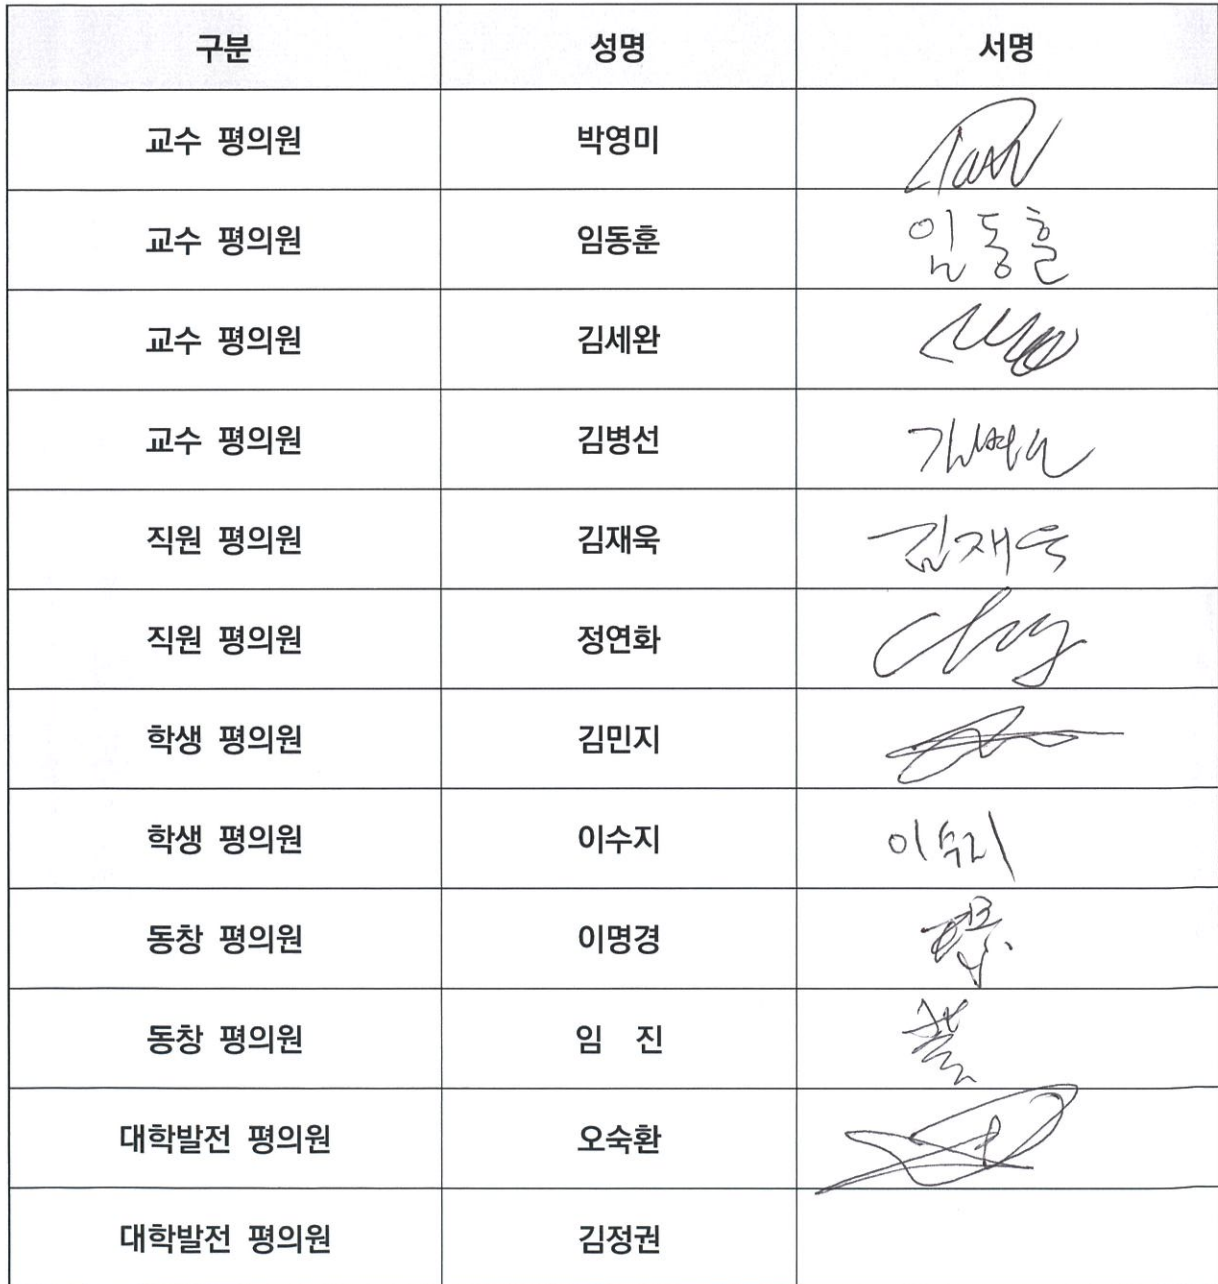 구분 성명 서명
교수 평의원 박영미
교수 평의원 임동훈 임동훈
교수 평의원 김세완
교수 평의원 김병선
직원 평의원 김재욱 김재욱
직원 평의원 정연화
학생 평의원 김민지
학생 평의원 이수지 이수지
동창 평의원 이명경
동창 평의원 임 진
대학발전 평의원 오숙환
대학발전 평의원 김정권